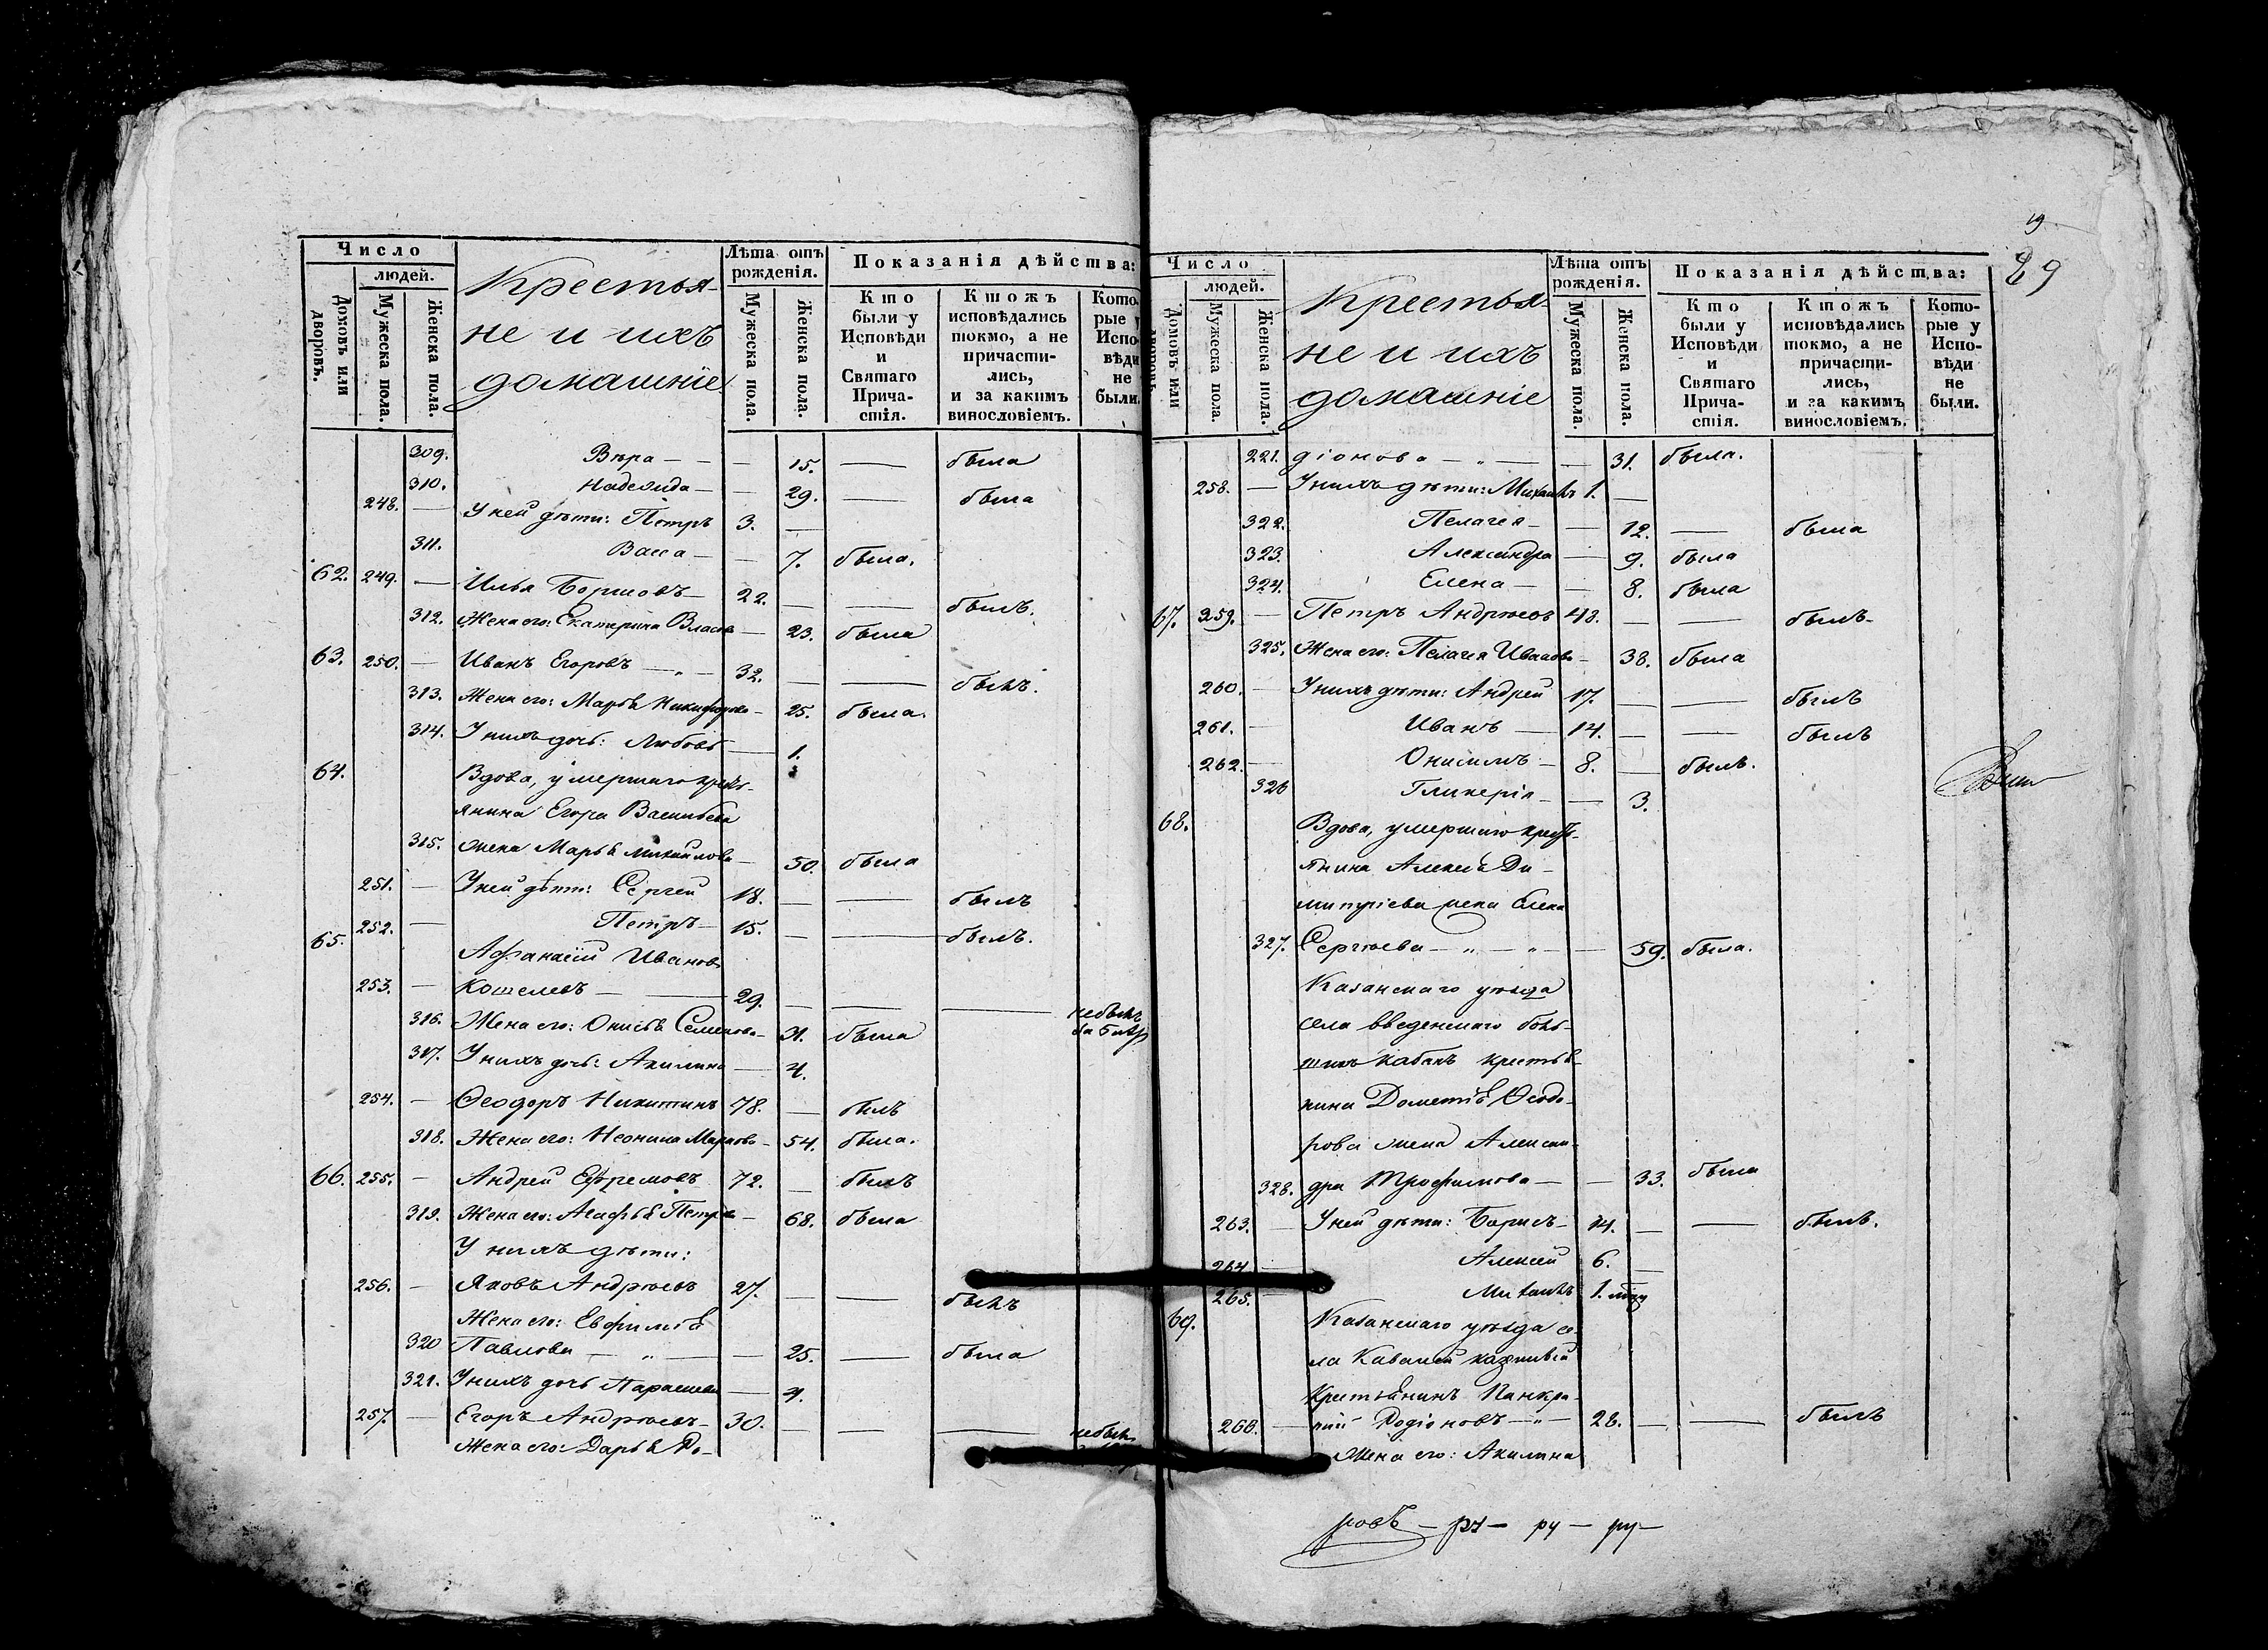 Число
людей.
Домовъ или дворовъ.
Мужеска пола.
Женска пола.
Крестья-
не и ихъ
домашніе
Лѣта отъ рожденія.
Мужеска пола.
Женска пола.
Показанія дѣйства:
Кто были у Исповѣди и Святаго Прича-стія.
Ктожъ исповѣдались токмо, а не причасти-лись, и за какимъ винословіемъ.
Кото-рые у Испо-вѣди не были.
309. Вѣра — — — 15. — была
310. Надежда — — 29. — была
248. — У ней дѣти: Петръ 3. —
311. Васса — — 7. была.
62. 249. — Илья Борисовъ — 22. — — былъ.
312. Жена его: Екатерина Власова — 23. была
63. 250. — Иванъ Егоровъ — „ — 32. — — былъ.
313. Жена его: Марья Никифорова — 25. была.
314. У нихъ дочь: Любовь — 1.
64. Вдова, умершаго кресть-
янина Егора Васильева
315. жена Марья Михайлова — 50. была
251. — У ней дѣти: Сергей 18. — — былъ
252. — Петръ — 15. — — былъ.
65. Афанасій Ивановъ
253. — Кошелевъ — — 29. — — — небылъ
316. Жена его: Онисья Семенова — 31. была
317. У нихъ дочь: Акилина — 4.
254. — Ѳеодоръ Никитинъ 78. — былъ
318. Жена его: Неонила Маркова — 54. была.
66. 255. — Андрей Ефремовъ 72. — былъ
319. Жена его: Агафья Петрова — 68. была
У нихъ дѣти:
256. — Яковъ Андреевъ 27. — — былъ
Жена его: Евфимія
320 Павлова — „ — — 25. — была
321. У нихъ дочь Параскева — 4.
257. — Егоръ Андреевъ — 30. — — — небылъ
Жена его: Дарья Ро-
19
29
Число
людей.
Домовъ или дворовъ.
Мужеска пола.
Женска пола.
Крестья-
не и ихъ
домашніе
Лѣта отъ рожденія.
Мужеска пола.
Женска пола.
Показанія дѣйства:
Кто были у Исповѣди и Святаго Прича-стія.
Ктожъ исповѣдались токмо, а не причасти-лись, и за какимъ винословіемъ.
Кото-рые у Испо-вѣди не были.
221. діонова — „ — — 31. была.
258. — У нихъ дѣти: Михаилъ 1. —
322. Пелагея — — 12. — была
323. Александра — 9. была
324. Елена — — 8. была
67. 259. — Петръ Андреевъ 43. — — былъ
325. Жена его: Пелагея Иванова — 38. была
260. — У нихъ дѣти: Андрей 17. — — былъ
261. — Иванъ — 14. — — былъ
262. — Онисимъ — 8. — былъ.
326 Гликерія — — 3.
68. Вдова, умершаго кресть-
янина Алексѣя Ди-
митріева жена Елена
327. Сергѣева — „ — „ — — 59. была.
Казанскаго уѣзда
села Введенскаго боль-
шихъ Кабанъ крестья-
нина Дометія Ѳеодо-
рова жена Алексан-
328. дра Трофимова — — 33. была
263. — У ней дѣти: Борисъ — 14. — — былъ.
264 — Алексѣй 6. —
265. — Михаилъ 1.
69. Казанскаго уѣзда се-
ла
Крестьянинъ Панкра-
266. — тій Родіоновъ — „ — 28. — — былъ
Жена его: Акилина